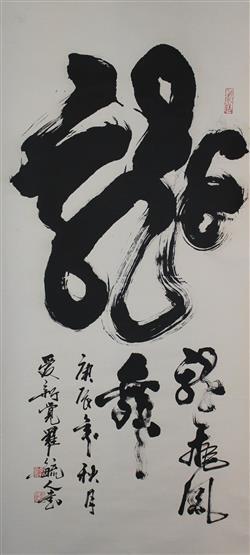 龍
龍飛鳳
舞
庚辰年秋月
愛新覺羅毓人書